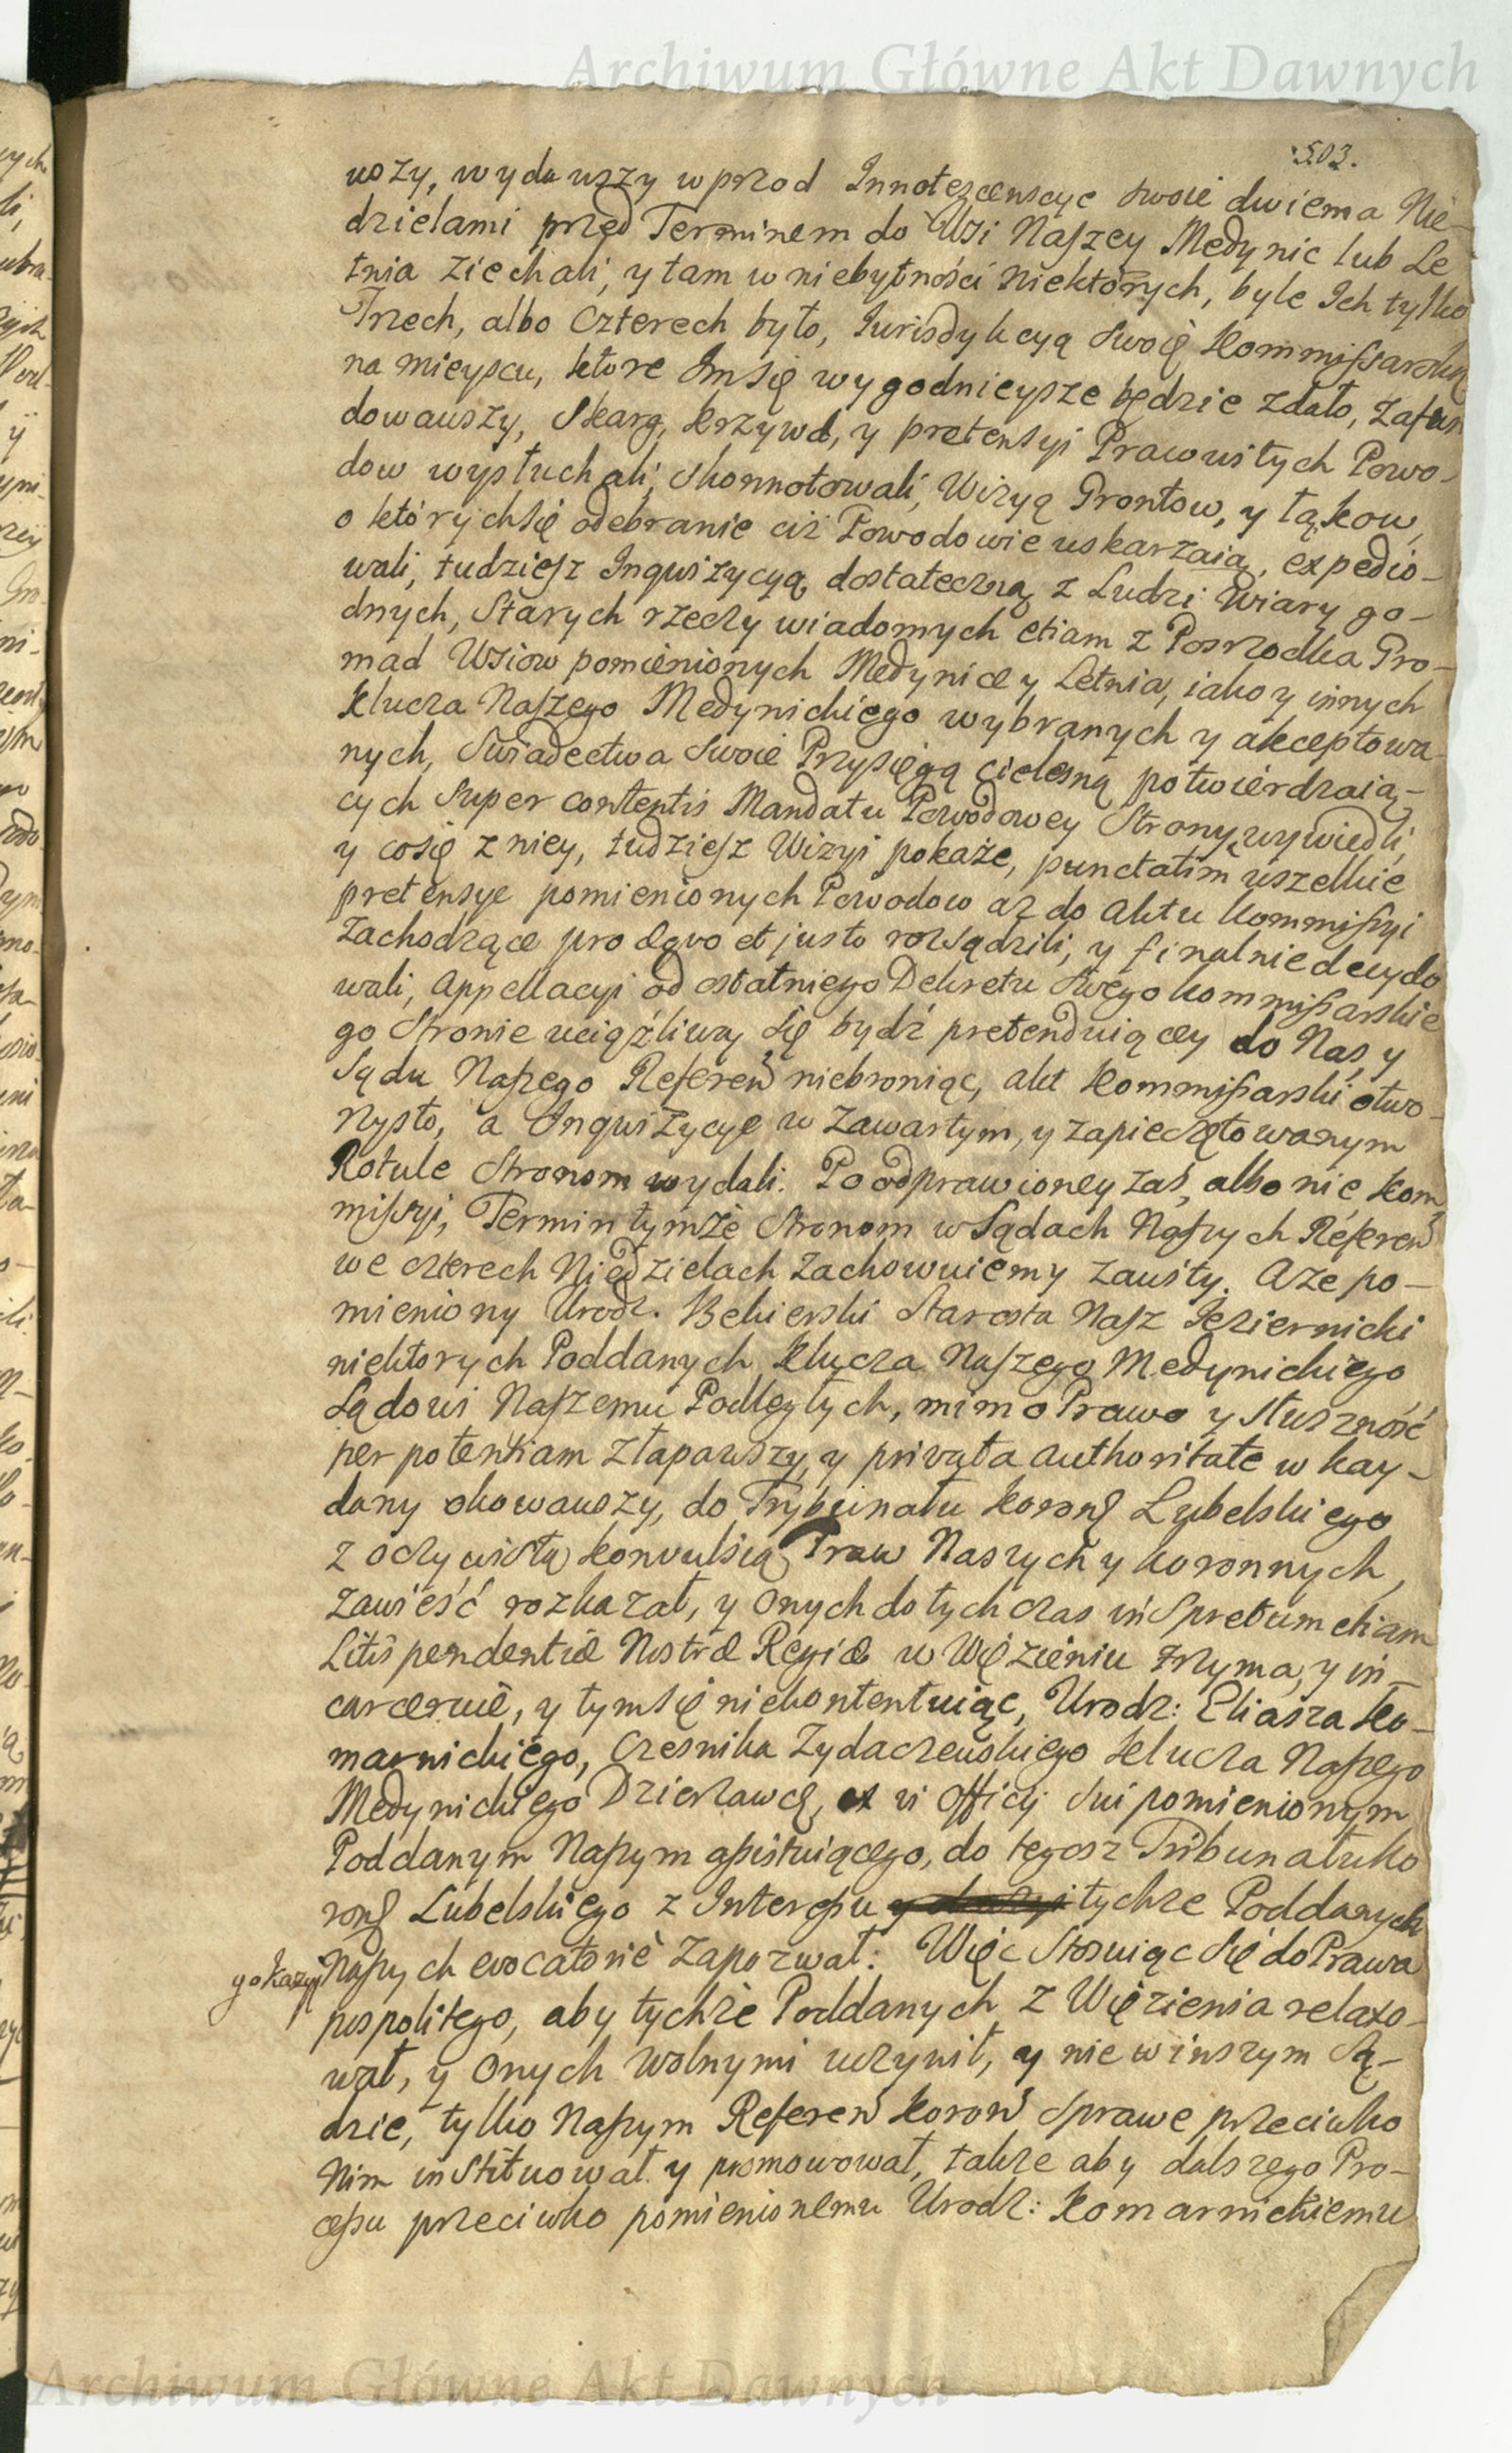 Archiwum Główne Akt Dawnych
503.
wszy, wydawszy wprzod Innotescencye swoie dwiema Nie-
dzielami przed Terminem do Wsi Naszey Medynic lub Le
tnia ziechali, y tam w niebytności niektórych, byle Ich tylko
Trzech, albo Czterech było, Iurisdykcyą swoię Kommissarską
na mieyscu, ktore Im się wygodnieysze będzie zdało, zafun
dowawszy, Skarg, krzywd, y pretensyi Prawnitych Powo-
dow wysłuchali, skonnotowali, Wizyą Grontow, y łąkow,
o których się odebranie ciż Powodowie uskarzaią, expedio-
wali, tudziesz Inquizycyą dostateczną z Ludzi Wiary go-
dnych, Starych rzeczy wiadomych etiam z Poszrodka Gro-
mad Wsiow pomienionych Medynice y Letnia, iako y innych
Klucza Naszego Medynickiego wybranych y akceptowa
nych, Swiadectwa Swoie Przysięgą cielesną potwierdzaią-
cych Super contentis Mandatu Powodowey Strony wywiedli,
y co się z niey, tudziesz Wizyi pokaże, punctatim wszelkie
pretensye pomienionych Powodow aż do aktu Kommissyi
zachodzące pro æquo et justo rozsądzili, y finalnie decydo
wali, Appellacyi od ostatniego Dekretu Swego Kommissarskie
go Stronie uciążliwą się bydź pretenduiącey do Nas, y
Sądu Naszego Referen niebroniąc, akt Kommissarski otwo-
rzysto, a Inquizycye w zawartym, y zapieczętowanym
Rotule Stronom wydali. Po odprawioney zas, albo nie Kom
missyi, Termin tymże Stronom w Sądach Naszych Referen
we czterech Niedzielach zachowuiemy zawity. A że po-
mieniony Urodz. Bekierski Starosta Nasz Jeziernicki
niektorych Poddanych Klucza Naszego Medynickiego
Sądowi Naszemu Podległych, mimo Prawo y słuszność
per potentiam złapawszy, y privata authoritate w kay-
dany okowawszy, do Trybunału Koron Lubelskiego
z oczywistą konvulsią Praw Naszych y koronnych,
zawieść rozkazał, y onych dotychczas in Spretum etiam
Litis pendentiæ Nostræ Regiæ w Więzieniu trzyma, y in-
carceruie, y tym się niekontentuiąc, Urodz: Eliasza Ko-
marnickiego, Czesnika Zydaczewskiego Klucza Naszego
Medynickiego Dzierzawcę, ex vi officij sui pomienionym
Poddanym Naszym assistuiącego, do tegosz Tribunału Ko
ron Lubelskiego z Interessu tychze Poddanych
y okazyi Naszych evocatorie zapozwał: Więc Stosuiąc się do Prawa
pospolitego, aby tychże Poddanych z Więzienia relaxo-
wał, y Onych wolnymi uczynił, y nie w inszym Są-
dzie, tylko Naszym Referen Koron Sprawę przeciwko
Nim instituował y promowował, także aby dalszego Pro-
cessu przeciwko pomienionemu Urodz: Komarnickiemu
Archiwum Główne Akt Dawnych